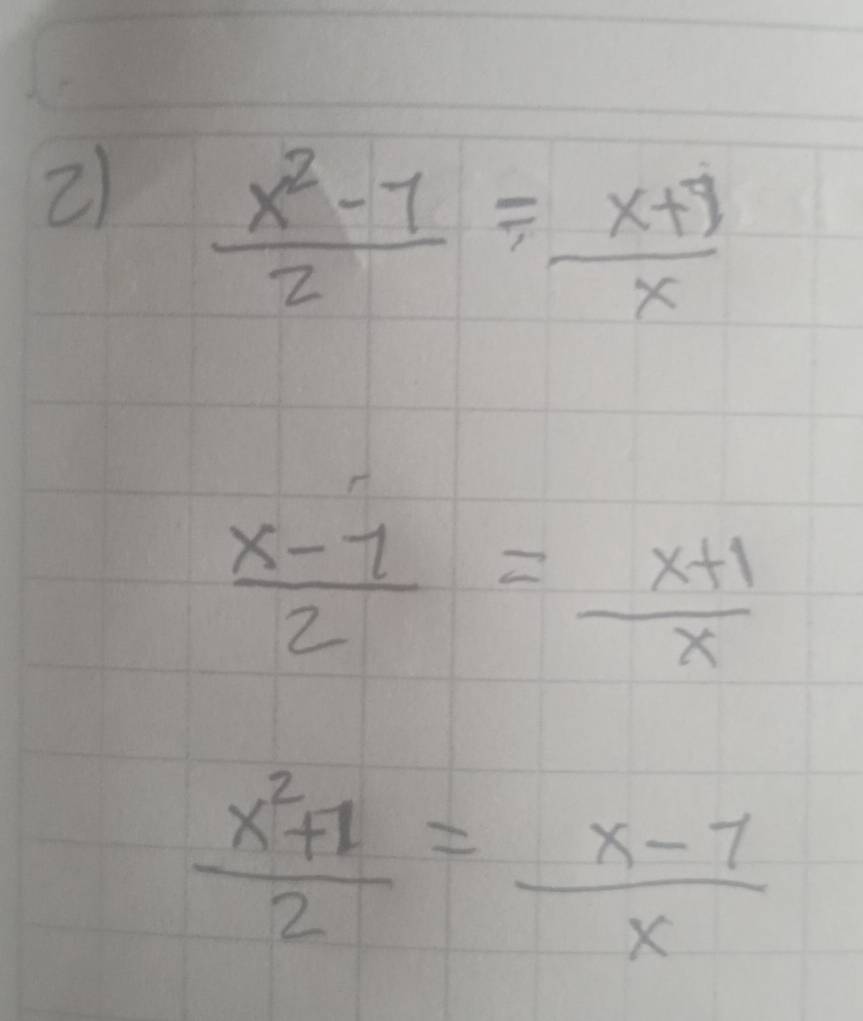 2) x² - 7 / 2 = x+1 / x
x - 7 / 2 = x+1 / x
x²+1 / 2 = x - 7 / x